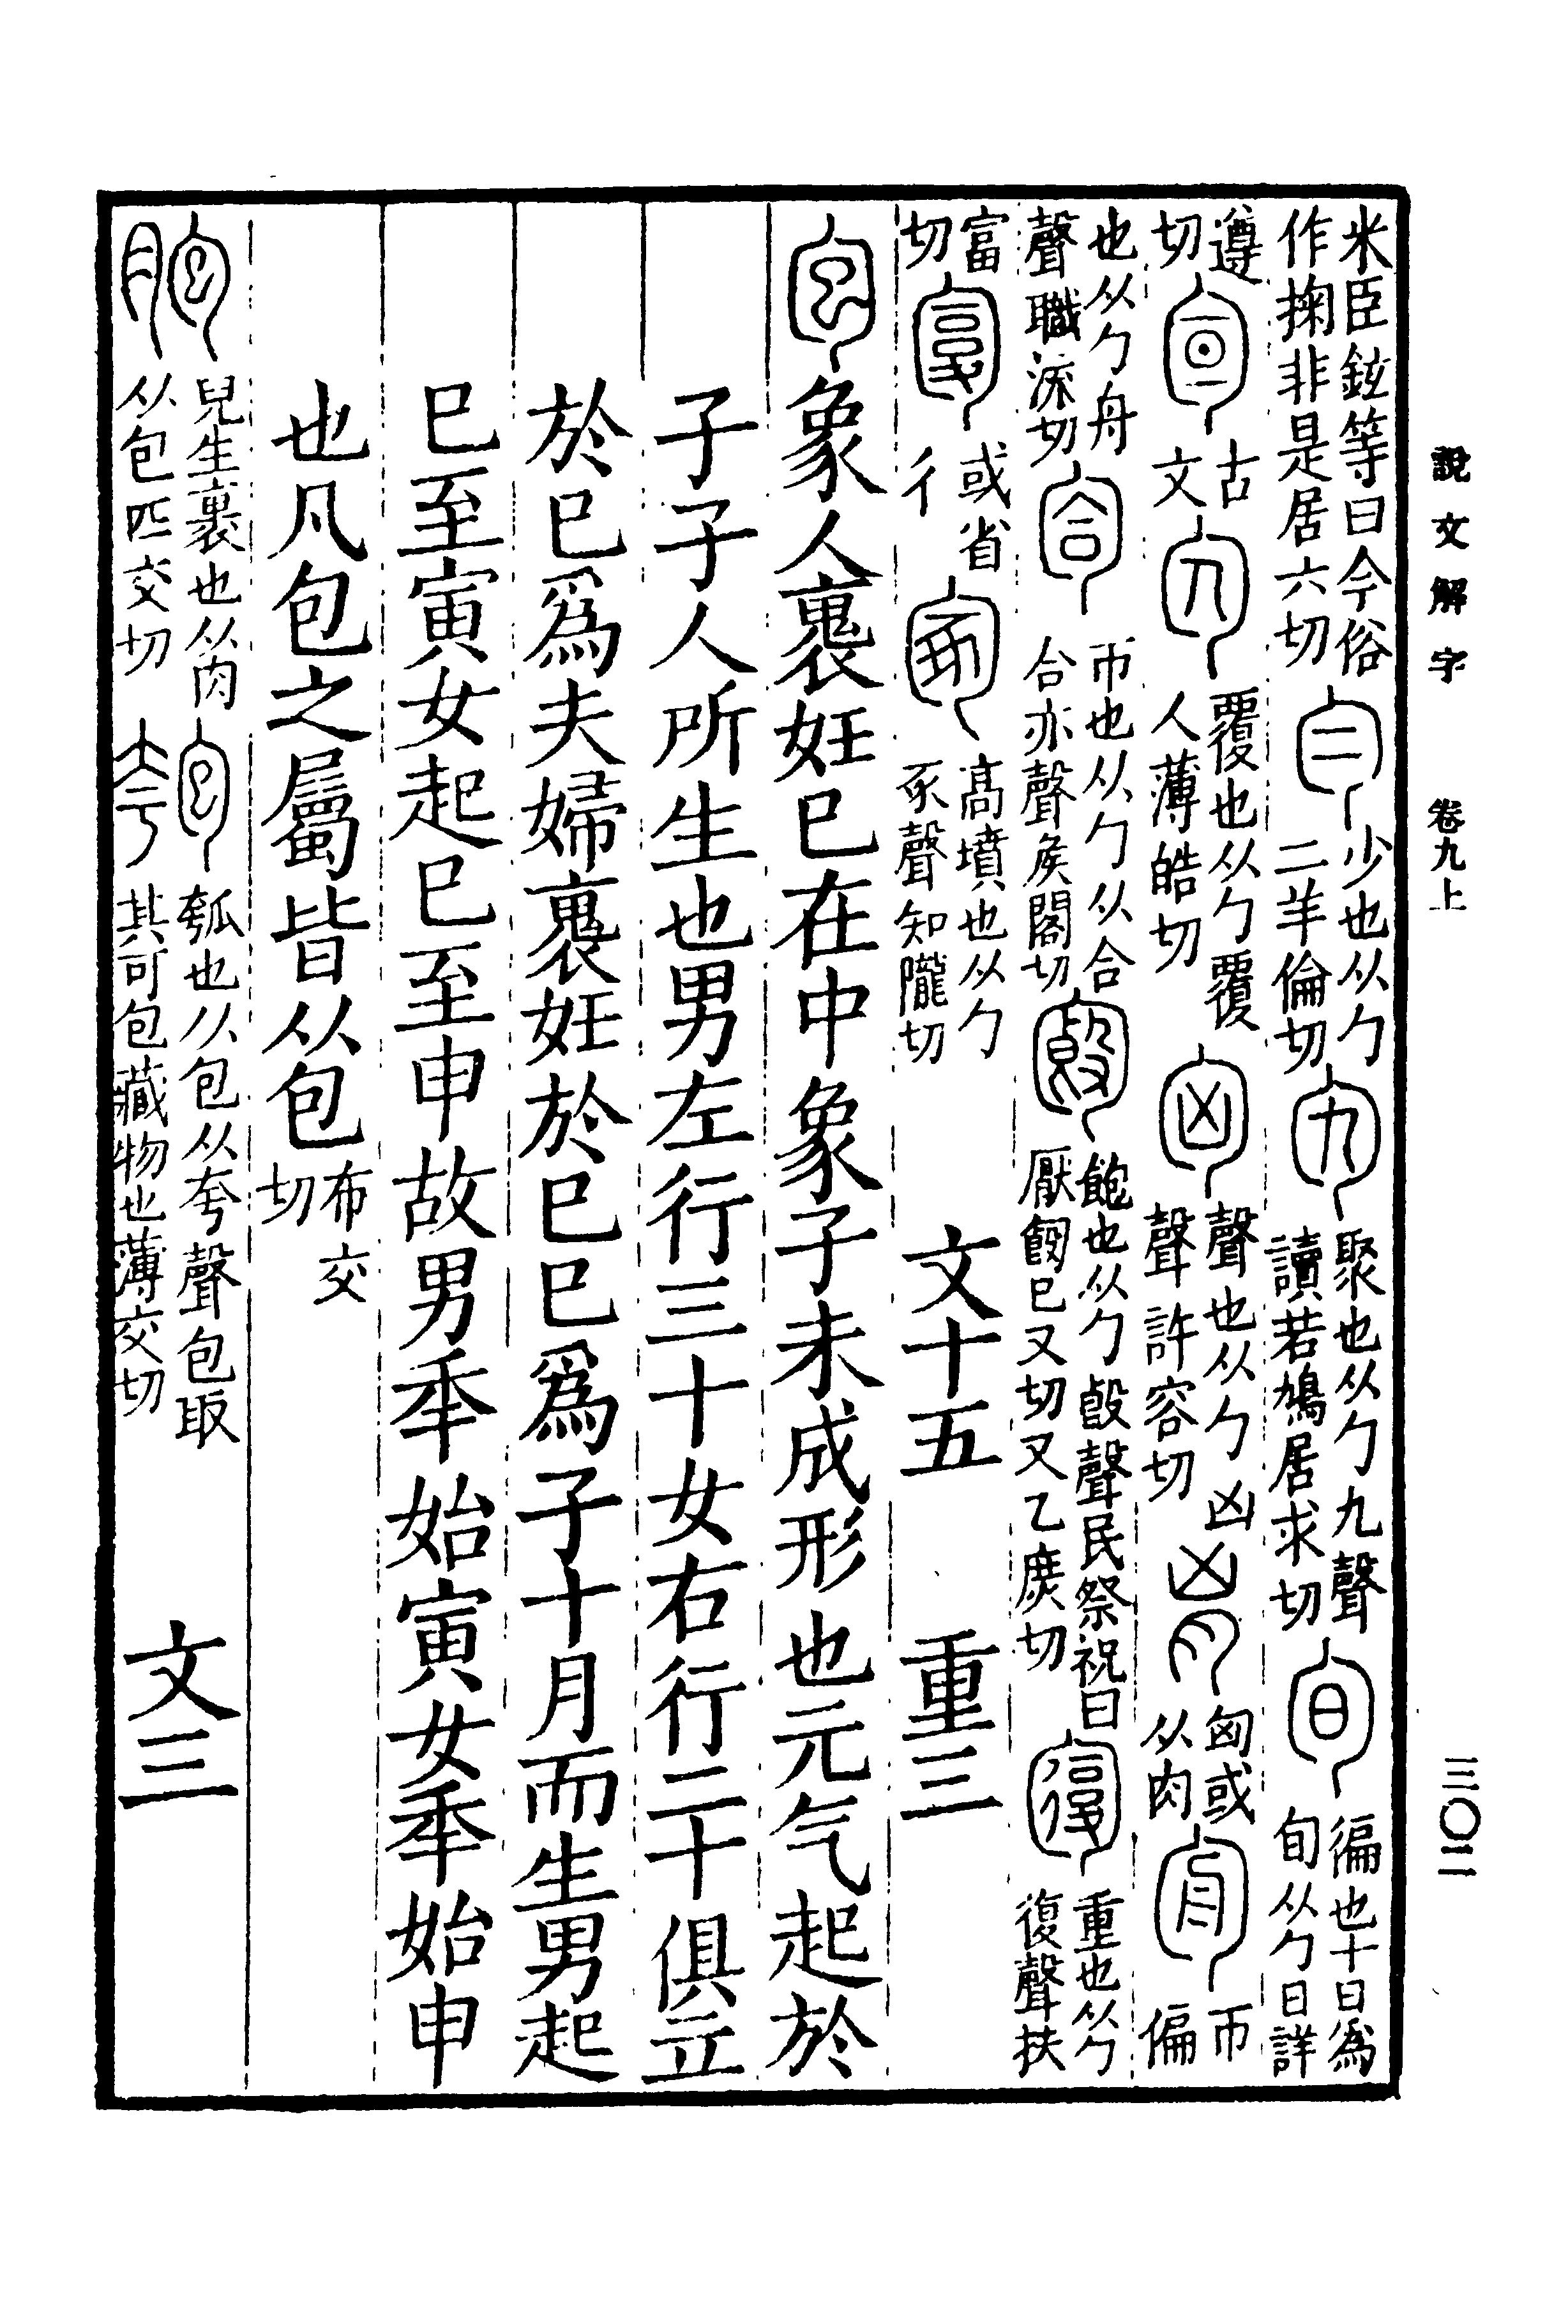 說文解字 卷九上 三〇二
米臣鉉等曰今俗作掬非是居六切 勻 少也从勹二羊倫切 勼 聚也从勹九聲讀若鳩居求切 旬 徧也十日爲旬从勹日詳
遵切 古文 勽 覆也从勹覆人薄皓切 匈 聲也从勹凶聲許容切 胷 匈或从肉 帀偏
也从勹舟聲職流切 匌 帀也从勹从合合亦聲矦閣切 飽也从勹𣪘聲民祭祝曰厭己又切又乙庶切 重也从勹復聲扶
富切 或省彳 冢 高墳也从勹豕聲知隴切 文十五 重三
包 象人裹妊巳在中象子未成形也元气起於
子子人所生也男左行三十女右行二十俱立
於巳爲夫婦裹妊於巳巳爲子十月而生男起
巳至寅女起巳至申故男秊始寅女秊始申
也凡包之屬皆从包布交切
胞 兒生裹也从肉从包匹交切 匏 瓠也从包从夸聲包取其可包藏物也薄交切 文三